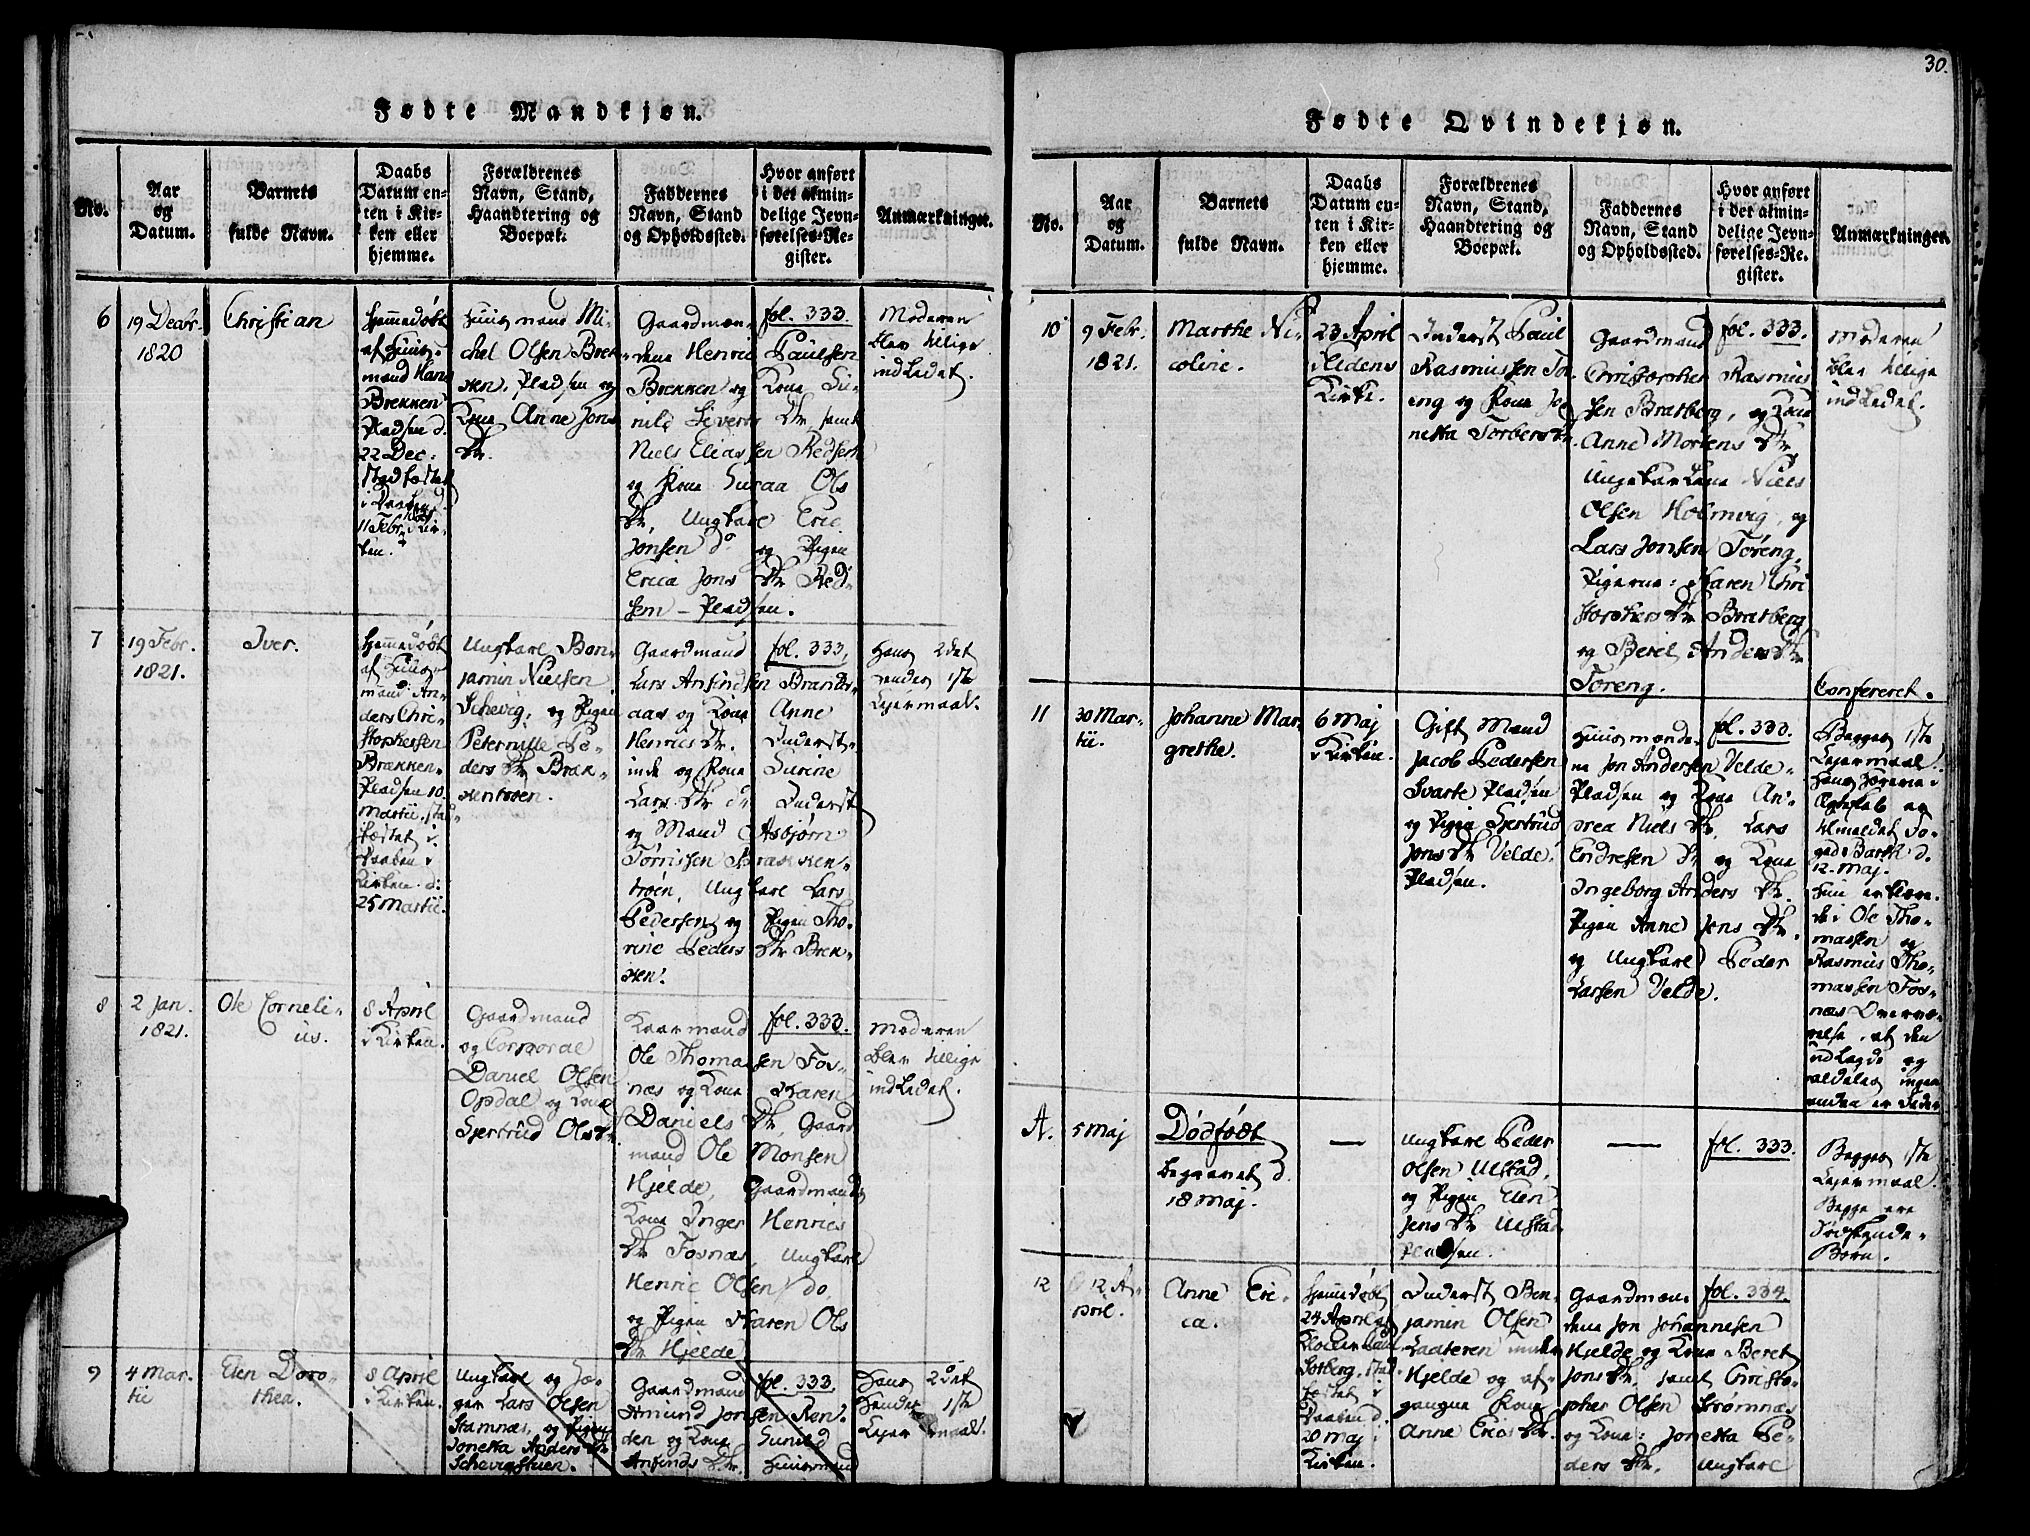 30.
Fødte Mandkjøn.
No.
Aar
og
Datum.
Barnets
fulde Navn.
Daabs
Datum en-
ten i Kir-
ken eller
hjemme.
Forældrenes
Navn, Stand,
Haandtering og
Boepæl.
Faddernes
Navn, Stand
og Opholdssted.
Hvor anført
i det almin-
delige Jevn-
førelses-Re-
gister.
Anmærkninger.
6
19 Decbr.
1820
Christian
Hjemmedøbt
af Huus-
mand Hans
Brekken
Pladsen d.
22 Dec:
stadfæstet
i Daaben
11 Febr. i Kir-
ken.
Huusmand Mi-
chel Olsen Brek-
ken, Pladsen og
Kone Anne Jons
Dtr.
Gaardmæn-
dene Henric Paulsen
Brekken og Kone Gu-
nild Siverts Dtr, samt
Niels Eliassen Redsem
og Kone Guraa Ols
Dtr, Ungkarl Eric
Jonsen do og Pigen
Erica Jons Dtr Red-
sem-Pladsen.
fol. 333.
Moderen
blev tillige
indledet.
7
19 Febr.
1821.
Iver.
Hjemmedøbt
af Huus-
mand An-
ders Chri-
stophersen
Brækken-
Pladsen 10
Martii, stad-
fæstet i
Daaben i
Kirken d:
25 Martii.
Ungkarl Ben-
jamin Nielsen
Schevig, og Pigen
Peternille Pe-
ders Dtr Bræk-
kentrøen.
Gaardmand
Lars Anfindsen Brands-
aas og Kone Anne
Henrics Dtr. Inderst-
inde og Kone Gurine
Lars Dtr do Inderst
og Mand Asbjørn
Tørrissen Brækken-
trøen, Ungkarl Lars
Pedersen og Pigen Tho-
rine Peders Dtr Bræk-
ken.
fol. 333.
Hans 2det
Hendes 1ste
Lejermaal.
8
2 Jan.
1821.
Ole Corneli-
us.
8 April
i Kirken.
Gaardmand
og Corporal
Daniel Olsen
Opdal og Kone
Gjertrud Ols Dtr
Kaarmand
Ole Thomassen Fos-
næs og Kone Karen
Daniels Dtr, Gaard
mand Ole Monsen
Hjelde, Gaardmands
Kone Inger Henrics
Dtr Fosnæs, Ungkarl
Henric Olsen do,
og Pigen Karen Ols
Dtr Hjelde
fol. 333.
Moderen
blev tillige
indledet.
9
4 Mar-
tii
Elen Doro-
thea.
8 April
i Kirken.
Ungkarl og Jæ-
ger Lars Olsen
Stamnæs, og Pigen
Jonetta Anders Dtr
Schevigstuen.
Gaardmand
Amund Jonsen Ron-
den og Kone Gunild
Anfinds Dtr. Huusmand
fol. 333
Hans 2det
Hendes 1ste
Lejermaal.
Fødte Qvindekjøn.
No.
Aar
og
Datum.
Barnets
fulde Navn.
Daabs
Datum en-
ten i Kir-
ken eller
hjemme.
Forældrenes
Navn, Stand,
Haandtering og
Boepæl.
Faddernes
Navn, Stand
og Opholdssted.
Hvor anført
i det almin-
delige Jevn-
førelses-Re-
gister.
Anmærkninger.
10
9 Febr.
1821.
Marthe Ni-
coline.
23 April
i Eldens
Kirke.
Inderst Paul
Rasmussen Tor-
eng og Kone Jo-
netta Torbers Dtr.
Gaardmand
Christopher Rasmus
sen Bratberg, og Kone
Anne Mortens Dtr
Ungkarlene Niels
Olsen Holmvig, og
Lars Jonsen Tøreng,
Pigerne: Karen Chri
stophers Dtr Bratberg
og Berit Anders Dtr
Toreng.
fol. 333.
Moderen
blev tillige
indledet.
11
30 Mar-
tii.
Johanne Mar-
grethe.
6 Maj
i Kirken.
Gift Mand
Jacob Pedersen
Svarte Pladsen
og Pigen Gjertrud
Jons Dtr Velde-
Pladsen.
Huusmænde-
ne Jon Andersen Velde-
Pladsen og Kone An-
drea Niels Dtr, Lars
Endresen do og Kone
Ingeborg Anders Dtr.
Pigen Anne Jens Dtr.
og Ungkarl Peder
Larsen Velde.
fol. 333.
Confereret.
Begges 1ste
Lejermaal.
12 Maj.
Hun erklære-
de i Ole Tho-
massen og
Rasmus Tho-
massen Fos-
næs Overvæ-
relse, at den
udlagde og
aldeles ingen
anden er Fader
A.
5 Maj
Dødfødt
begravet d.
18 Maj.
—
Ungkarl Peder
Olsen Ulstad,
og Pigen Elen
Jens Dtr Ulstad
Pladsen.
—
fol. 333.
Begges 1ste
Lejermaal.
Begge ere
Sødskende-
Børn.
12
12 A-
pril.
Anne Eri-
ca.
Hjemmedøbt
24 April af
Klokker Lars
Solberg, stad-
fæstet i
Daaben d.
20 Maj i
Kirken.
Inderst Ben-
jamin Olsen
Laateren under
Hjelde og af-
gangne Kone
Anne Erics Dtr.
Gaardmæn-
dene Jon Johannesen
Hjelde og Kone Beret
Jons Dtr, samt Christo-
pher Olsen Strømnæs
og Kone: Jonetta Pe-
ders Dtr, Ungkarl
fol. 334.